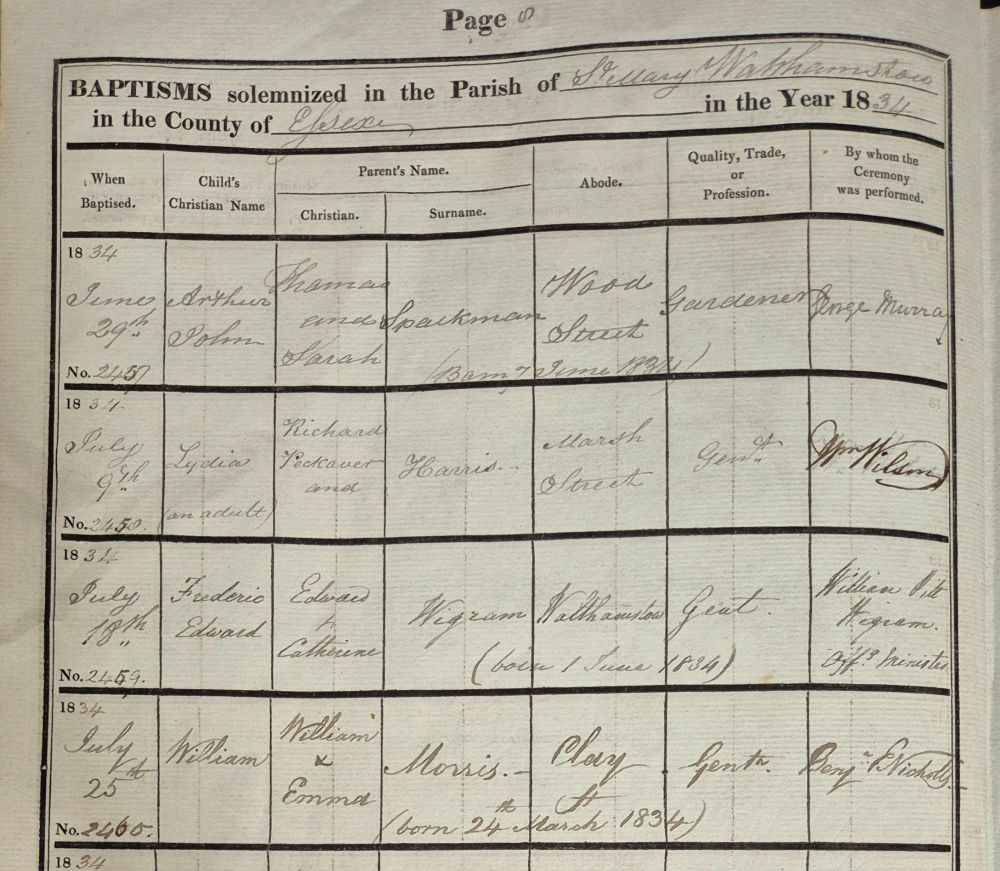 Page 8
BAPTISMS solemnized in the Parish of St Mary Walthamstow
in the County of Essex in the Year 1834
When Baptised.
Child's Christian Name
Parent's Name.
Christian.
Surname.
Abode.
Quality, Trade, or Profession.
By whom the Ceremony was performed.
1834
June 29th
No. 2457
Arthur John
Thomas and Sarah
Spackman
Wood Street
Gardener
George Murray
(Born 7 June 1834)
1834.
July 9th
No. 2458.
Lydia
(an adult)
Richard Peckover and
Harris.-
Marsh Street
Gent.
Wm Wilson
1834
July 18th
No. 2459.
Frederic Edward
Edward + Catherine
Wigram
Walthamstow
Gent.
William Pitt Wigram.
Offg Minister
(born 1 June 1834)
1834
July 25th
No. 2460.
William
William x Emma
Morris.-
Clay St
Gentn.
Benjn E Nicholls
(born 24th March 1834)
1834